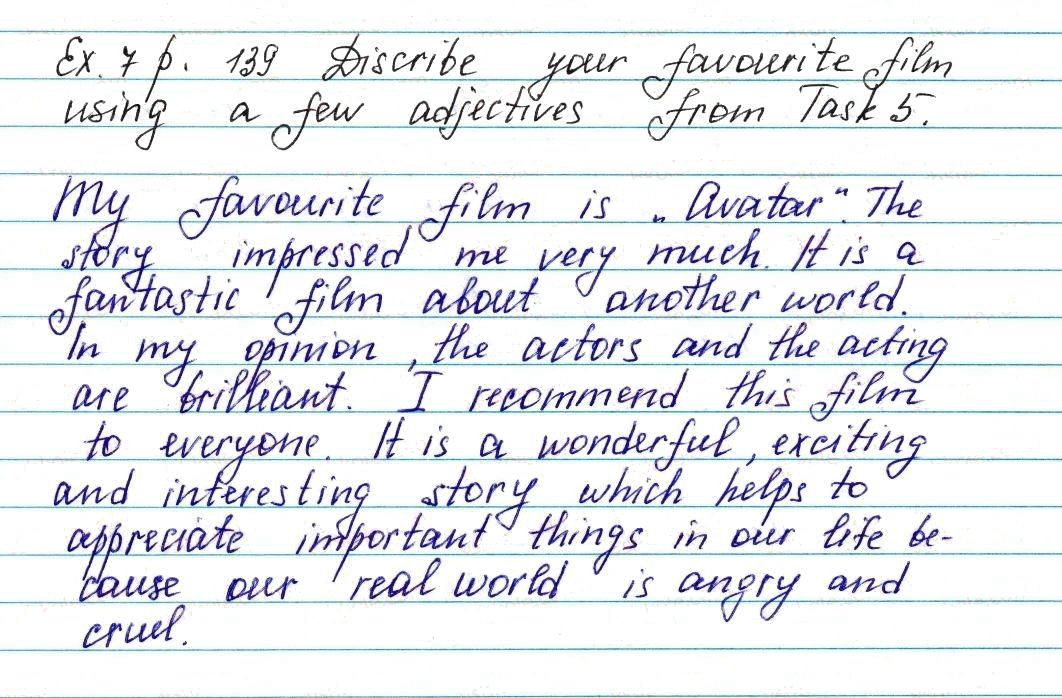 Ex. 7 p. 139 Discribe your favourite film
using a few adjectives from Task 5.
My favourite film is „Avatar“. The
story impressed me very much. It is a
fantastic film about another world.
In my opinion, the actors and the acting
are brilliant. I recommend this film
to everyone. It is a wonderful, exciting
and interesting story which helps to
appreciate important things in our life be-
cause our real world is angry and
cruel.